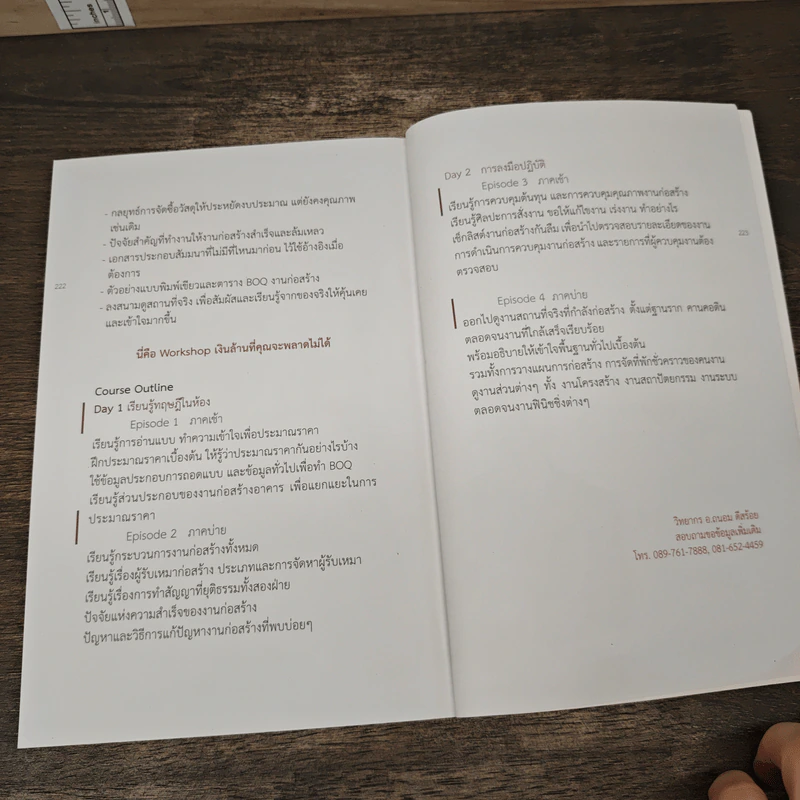 inches
222
- กลยุทธ์การจัดซื้อวัสดุให้ประหยัดงบประมาณ แต่ยังคงคุณภาพ
เช่นเดิม
- ปัจจัยสำคัญที่ทำงานให้งานก่อสร้างสำเร็จและล้มเหลว
- เอกสารประกอบสัมมนาที่ไม่มีที่ไหนมาก่อน ไว้ใช้อ้างอิงเมื่อ
ต้องการ
- ตัวอย่างแบบพิมพ์เขียวและตาราง BOQ งานก่อสร้าง
- ลงสนามดูสถานที่จริง เพื่อสัมผัสและเรียนรู้จากของจริงให้คุ้นเคย
และเข้าใจมากขึ้น
นี่คือ Workshop เงินล้านที่คุณจะพลาดไม่ได้
Course Outline
Day 1 เรียนรู้ทฤษฎีในห้อง
Episode 1 ภาคเช้า
เรียนรู้การอ่านแบบ ทำความเข้าใจเพื่อประมาณราคา
ฝึกประมาณราคาเบื้องต้น ให้รู้ว่าประมาณราคากันอย่างไรบ้าง
ใช้ข้อมูลประกอบการถอดแบบ และข้อมูลทั่วไปเพื่อทำ BOQ
เรียนรู้ส่วนประกอบของงานก่อสร้างอาคาร เพื่อแยกแยะในการ
ประมาณราคา
Episode 2 ภาคบ่าย
เรียนรู้กระบวนการงานก่อสร้างทั้งหมด
เรียนรู้เรื่องผู้รับเหมาก่อสร้าง ประเภทและการจัดหาผู้รับเหมา
เรียนรู้เรื่องการทำสัญญาที่ยุติธรรมทั้งสองฝ่าย
ปัจจัยแห่งความสำเร็จของงานก่อสร้าง
ปัญหาและวิธีการแก้ปัญหางานก่อสร้างที่พบบ่อยๆ
Day 2 การลงมือปฏิบัติ
Episode 3 ภาคเช้า
เรียนรู้การควบคุมต้นทุน และการควบคุมคุณภาพงานก่อสร้าง
เรียนรู้ศิลปะการสั่งงาน ขอให้แก้ไขงาน เร่งงาน ทำอย่างไร
เช็กลิสต์งานก่อสร้างกันลืม เพื่อนำไปตรวจสอบรายละเอียดของงาน
การดำเนินการควบคุมงานก่อสร้าง และรายการที่ผู้ควบคุมงานต้อง
ตรวจสอบ
223
Episode 4 ภาคบ่าย
ออกไปดูงานสถานที่จริงที่กำลังก่อสร้าง ตั้งแต่ฐานราก คานคอดิน
ตลอดจนงานที่ใกล้เสร็จเรียบร้อย
พร้อมอธิบายให้เข้าใจพื้นฐานทั่วไปเบื้องต้น
รวมทั้งการวางแผนการก่อสร้าง การจัดที่พักชั่วคราวของคนงาน
ดูงานส่วนต่างๆ ทั้ง งานโครงสร้าง งานสถาปัตยกรรม งานระบบ
ตลอดจนงานฟินิชชิ่งต่างๆ
วิทยากร อ.ถนอม ดีสร้อย
สอบถามขอข้อมูลเพิ่มเติม
โทร. 089-761-7888, 081-652-4459